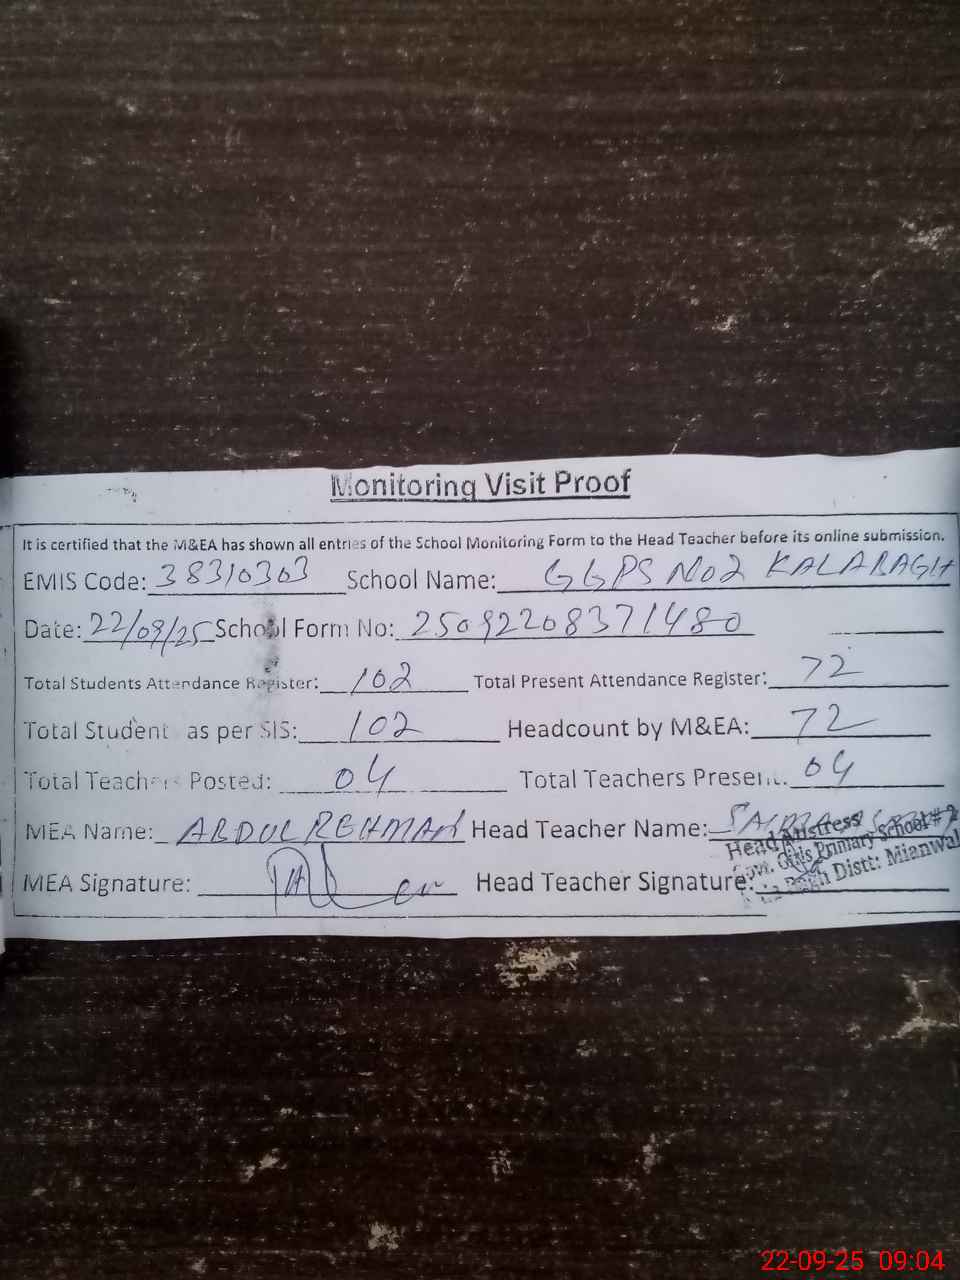 Monitoring Visit Proof
It is certified that the M&EA has shown all entries of the School Monitoring Form to the Head Teacher before its online submission.
EMIS Code: 38310303 School Name: GGPS No2 KALABAGH
Date: 22/09/25 School Form No: 25092208371480
Total Students Attendance Register: 102 Total Present Attendance Register: 72
Total Student as per SIS: 102 Headcount by M&EA: 72
Total Teachers Posted: 04 Total Teachers Present: 04
MEA Name: ABDUL REHMAN Head Teacher Name: SAIMA
Head Mistress
Govt. Girls Primary School # 2
Bagh Distt: Mianwal
MEA Signature: Head Teacher Signature:
22-09-25 09:04